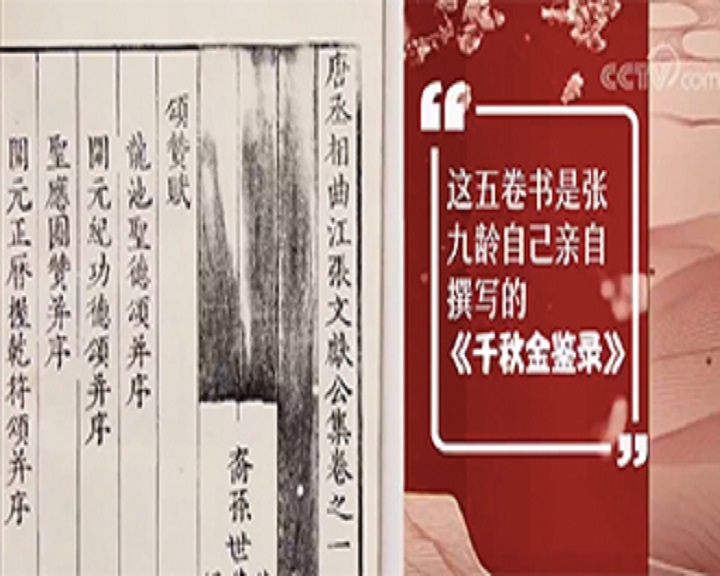 唐丞相曲江張文獻公集卷之一
裔孫世
頌贊賦
龍池聖德頌并序
開元紀功德頌并序
聖應圖贊并序
開元正曆握乾符頌并序
CCTV.com
这五卷书是张
九龄自己亲自
撰写的
《千秋金鉴录》